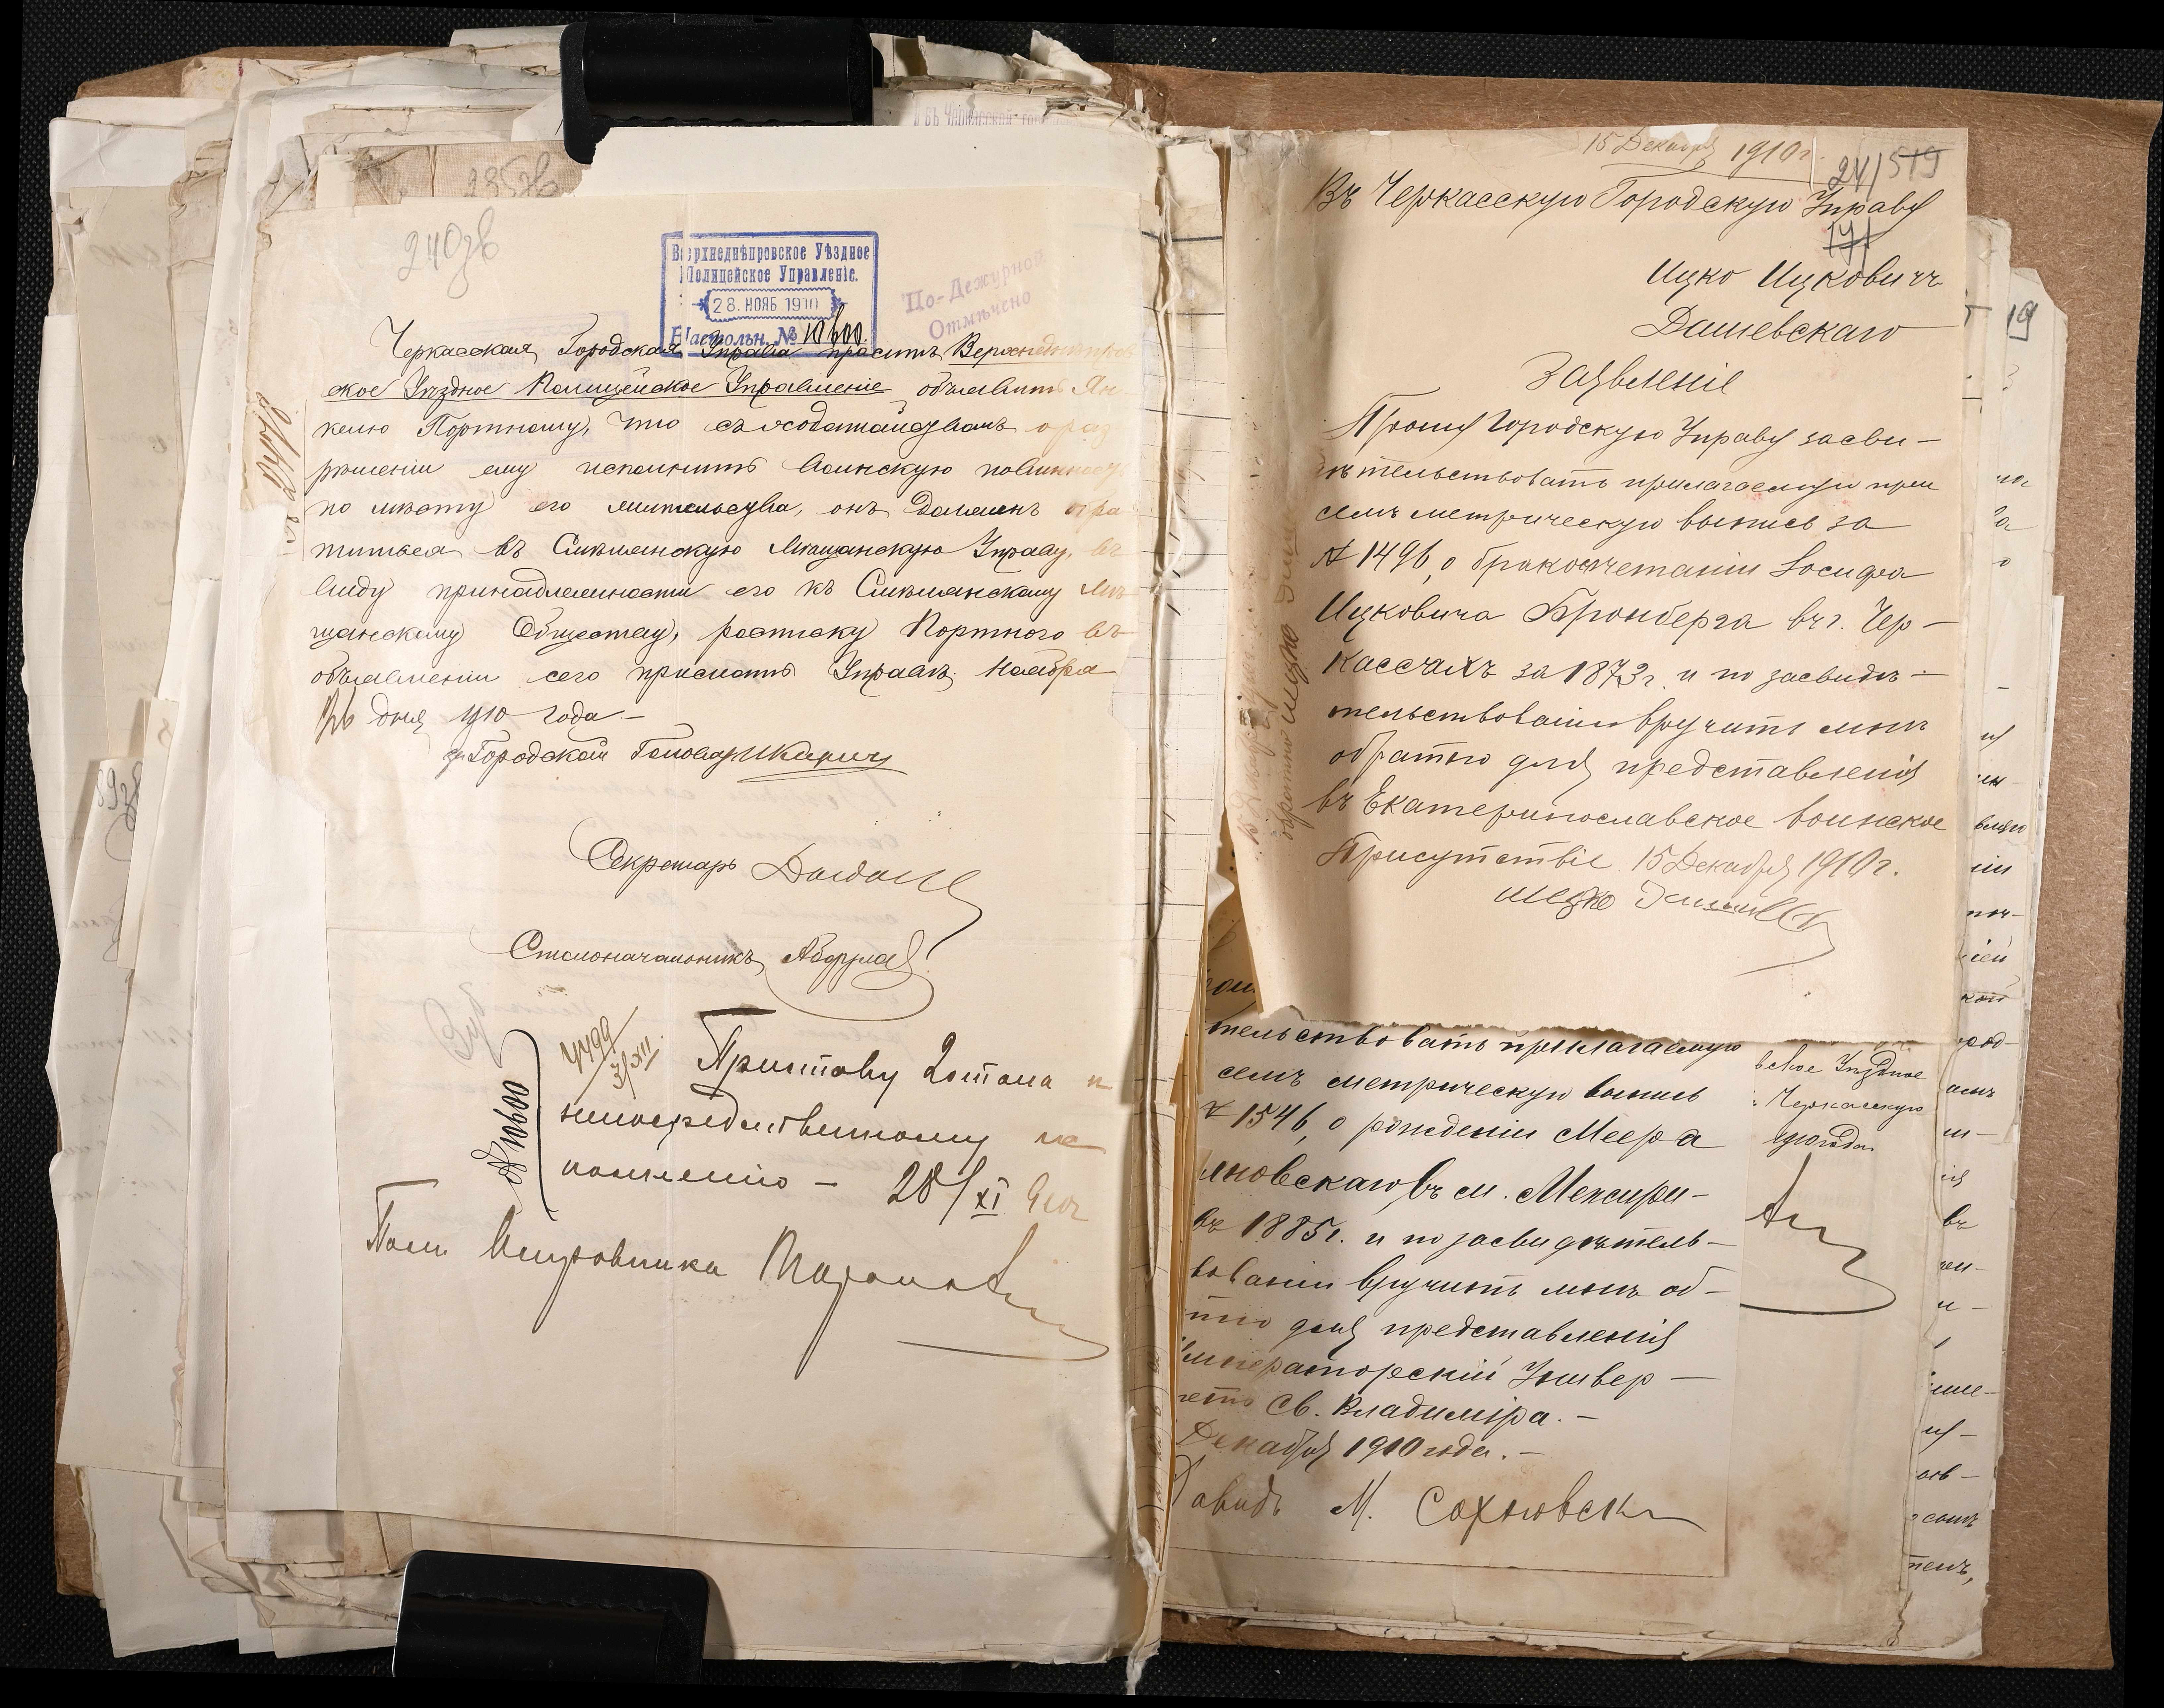 235зв
240зв
Верхнеднѣпровское Уѣздное
Полицейское Управленіе.
28. НОЯБ 1910
Настольн. № 10600.
По-Дежурной
Отмѣчено
Черкасская Городская Управа проситъ Верхнеднѣпров
ское Уѣздное Полицейское Управленіе объявить Ян
келю Портному, что съ ходатайствомъ о раз
рѣшеніи ему исполнить воинскую повинность
по мѣсту его жительства, онъ долженъ обра
титься въ Смѣлянскую Мѣщанскую Управу, въ
виду принадлежности его къ Смѣлянскому Мѣ
щанскому Обществу, росписку Портного въ
объявленіи сего прислать Управѣ. Ноября
дня 1910 года —
Городской Голова
Секретарь
Столоначальникъ
4499
3/XII
№ 10600
Приставу 2 стана к
непосредственному ис
полненію — 28/XI 910г
Пом Исправника
15 Декабря 1910г.
241 519
171
Въ Черкасскую Городскую Управу
Ицко Ицковичъ
Дашевскаго
Заявленіе
Прошу Городскую Управу засви-
дѣтельствовать прилагаемую при
семъ метрическую выпись за
№ 1496, о бракосчетаніи Іосифа
Ицковича Бронберга въ г. Чер-
кассахъ за 1873г. и по засвидѣ-
тельствованіи вручить мнѣ
обратно для представленія
въ Екатеринославское воинское
Присутствіе 15 Декабря 1910г.
Ицко
тельствовать прилагаемую
семъ метрическую выпись
№ 1546, о рожденіи Меера
яновскаго въ м. Мексири-
въ 1885г. и по засвидѣтель-
вованіи вручить мнѣ об-
тно для представленія
Императорскій Универ-
тетъ Св. Владиміра. —
Декабря 1910 года. —
Давидъ М. Сохновск
вское Уѣздное
Черкасскую
1910 года
19